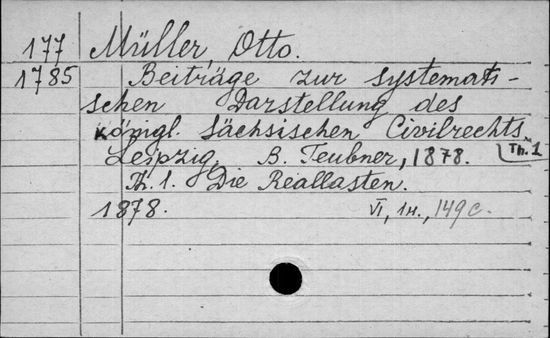 177 Müller, Otto.
1785 Beiträge zur systemati-
schen Darstellung des
königl. Sächsischen Civilrechts.
Th. 1
Leipzig, B. Teubner, 1878.
Th. 1. Die Reallasten.
1878. VI, 1н., 149 с.